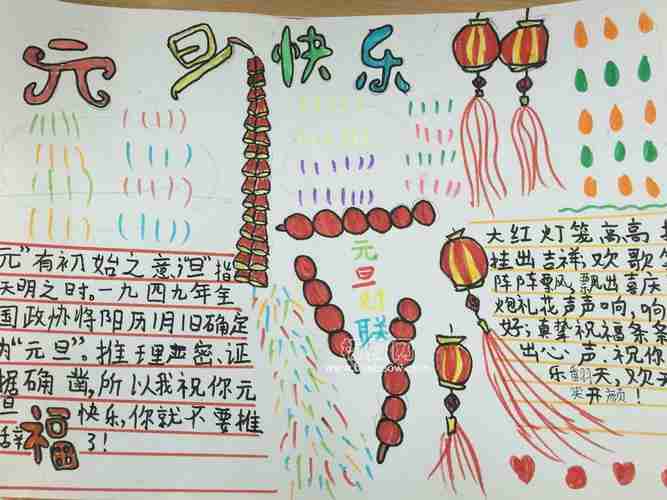 元旦快乐
元"有初始之意,"旦"指
天明之时。一九四九年全
国政协将阳历1月1日确定
为"元旦"。推理严密、证
据确凿,所以我祝你元
旦 快乐,你就不要推
辞 了!
福
元旦对联
大红灯笼高高
挂出吉祥;欢歌
阵阵飘,飘出喜庆
炮礼花声声响,响
好;真挚祝福条条
出心声:祝你
乐翻天,欢
笑开颜!